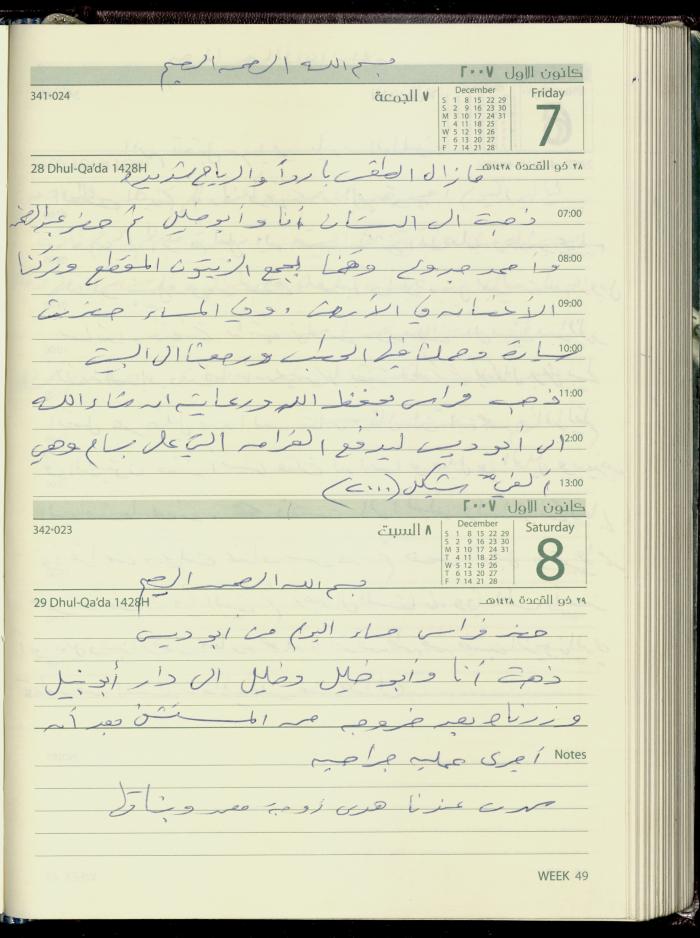 بسم الله الرحمن الرحيم
كانون الاول ٢٠٠٧
341-024
٧ الجمعة
December
S 1 8 15 22 29
S 2 9 16 23 30
M 3 10 17 24 31
T 4 11 18 25
W 5 12 19 26
T 6 13 20 27
F 7 14 21 28
Friday
7
28 Dhul-Qa'da 1428H
٢٨ ذو القعدة ١٤٢٨هـ
مازال الطقس بارداً والرياح شديدة
07:00 ذهبت الى البستان أنا وأبو خليل ثم حضر
08:00 وأحمد وقمنا بجمع الزيتون المقطع وتركنا
09:00 الأغصان في الأرض. وفي المساء حضرت
10:00 سيارة وحملنا فيها الحطب ورجعنا الى البيت
11:00 ذهب فراس بحفظ الله ورعايته ان شاء الله
12:00 الى أبو ديس ليدفع الغرامه التي على بسام وهي
13:00 ألفي شيكل (٢٠٠٠)
كانون الاول ٢٠٠٧
342-023
٨ السبت
December
S 1 8 15 22 29
S 2 9 16 23 30
M 3 10 17 24 31
T 4 11 18 25
W 5 12 19 26
T 6 13 20 27
F 7 14 21 28
Saturday
8
بسم الله الرحمن الرحيم
29 Dhul-Qa'da 1428H
٢٩ ذو القعدة ١٤٢٨هـ
حضر فراس مساء اليوم من ابو ديس
ذهبت أنا وأبو خليل وخليل الى دار أبو نبيل
وزرناه بعد خروجه من المستشفى بعد أن
Notes أجرى عمليه جراحيه
سهرت عندنا هدى زوجة محمد وبناتها
WEEK 49